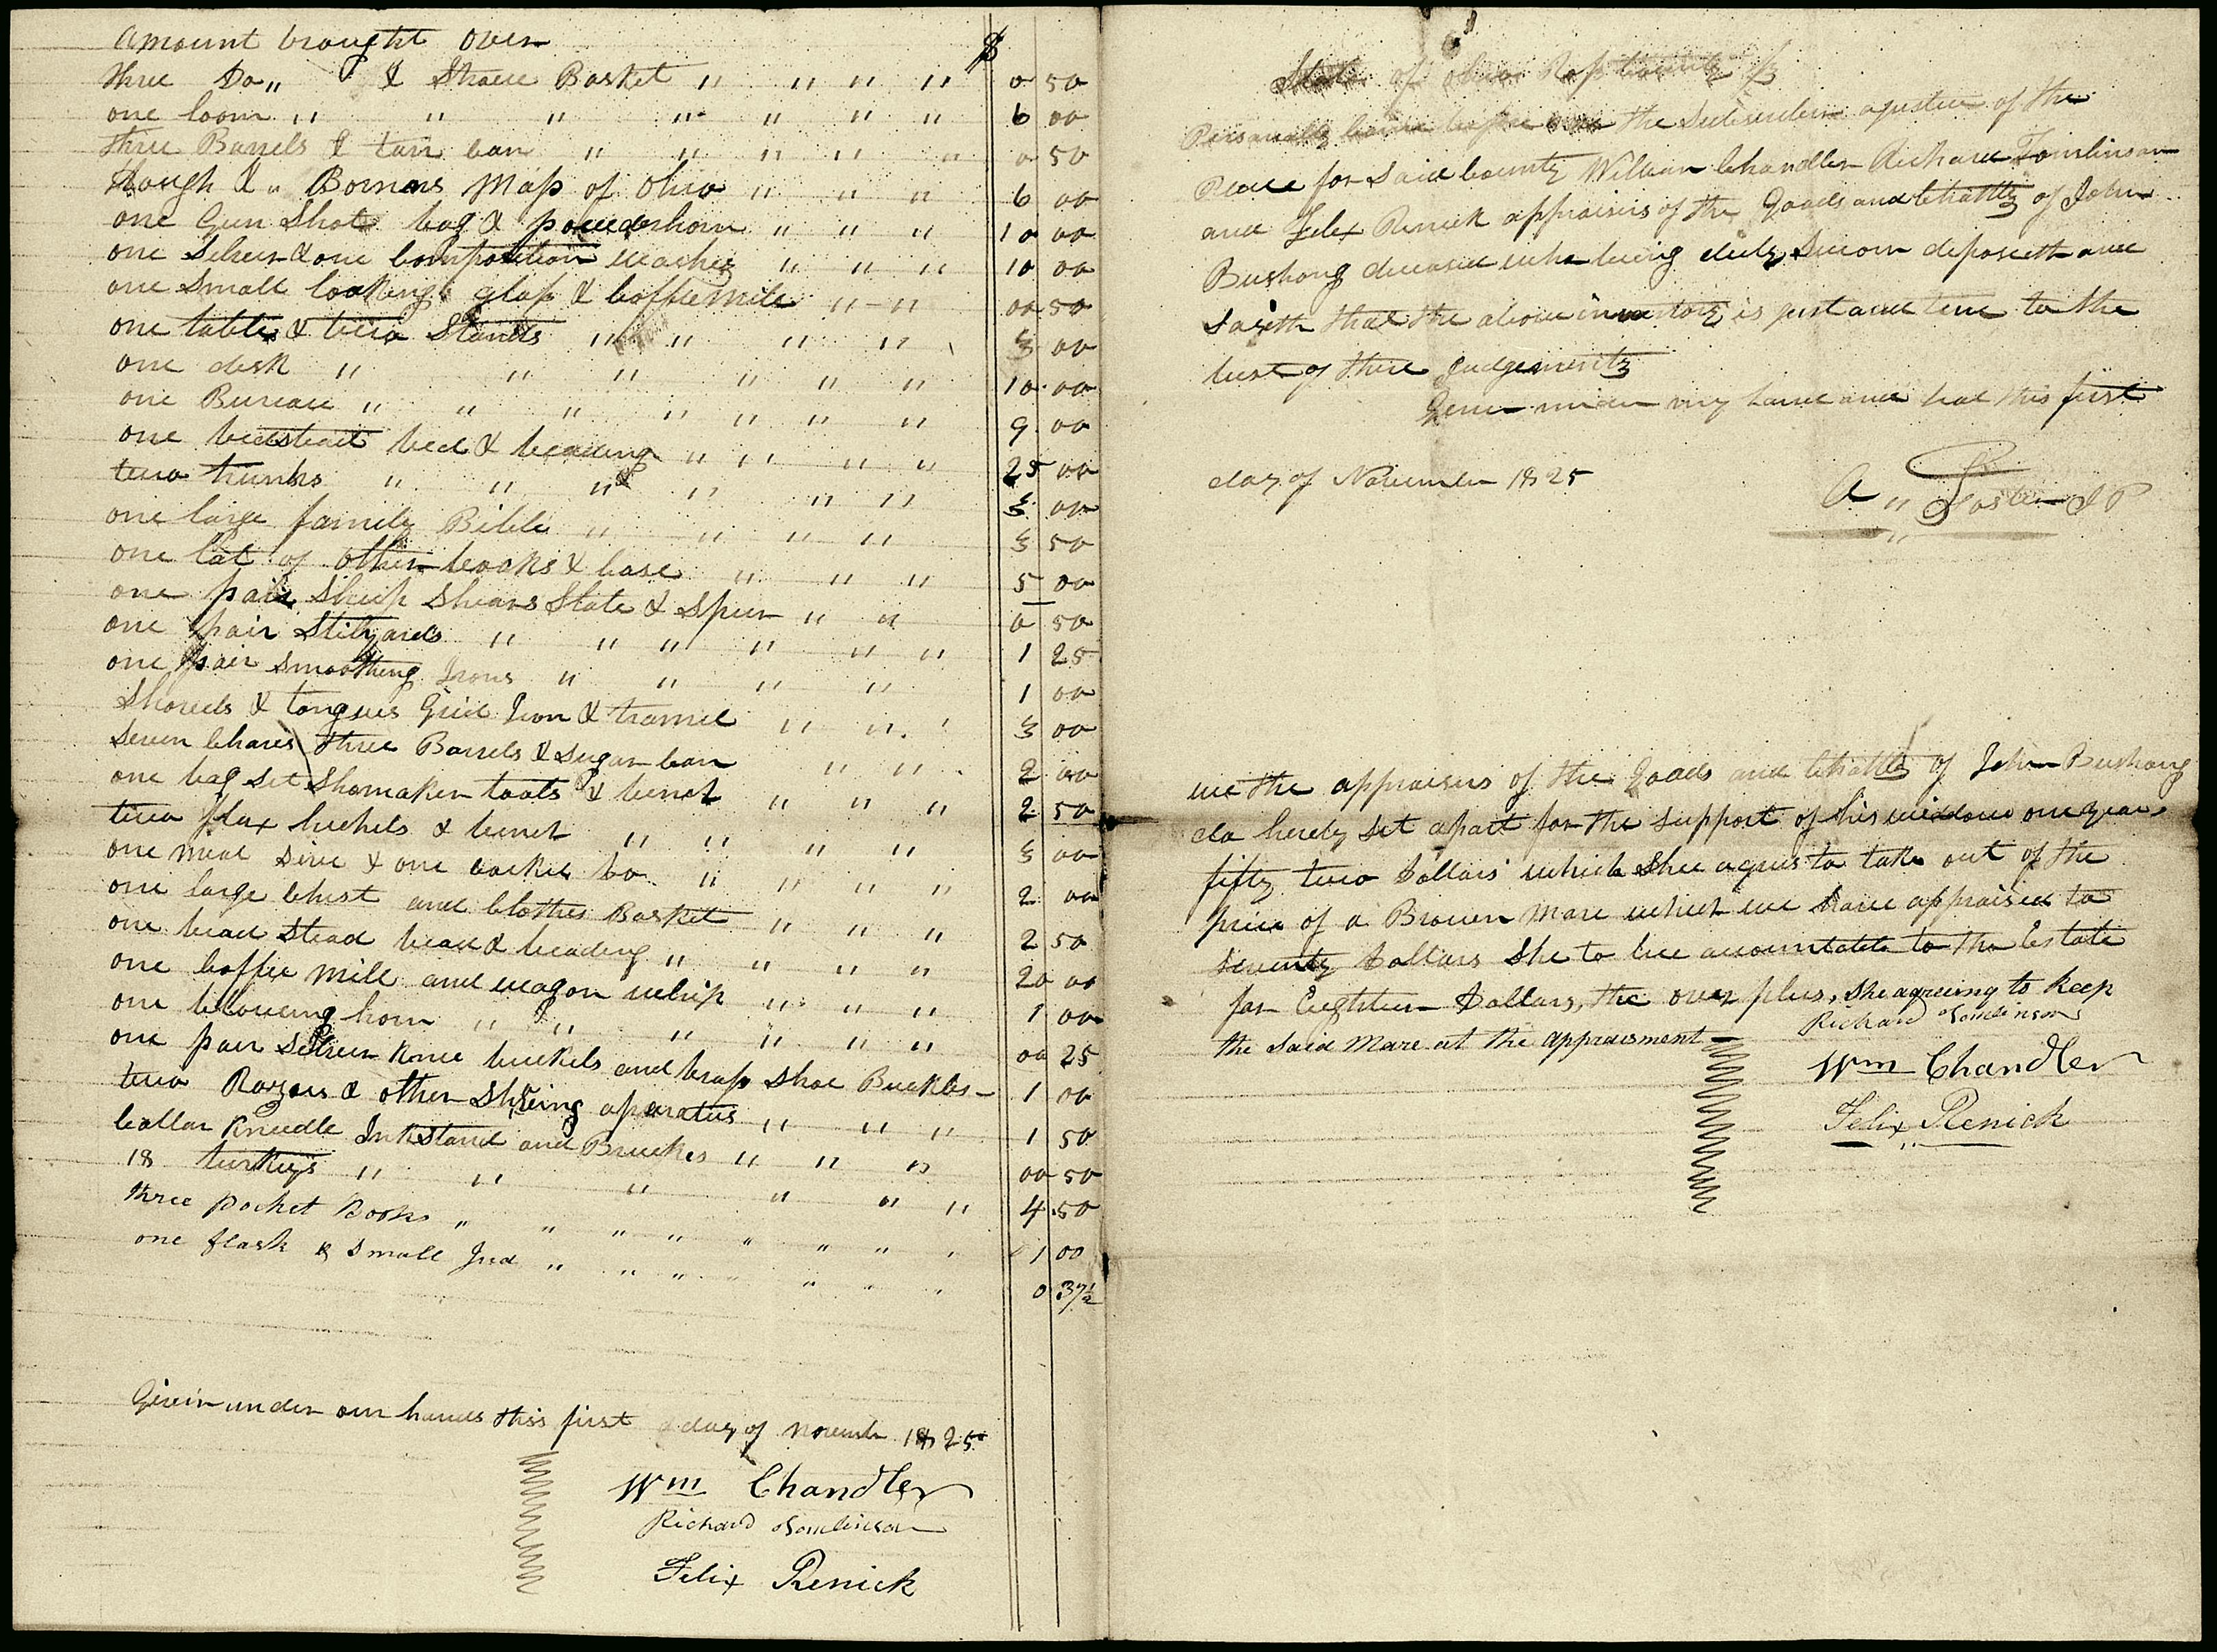 Amount brought over $
three Do,, & Straw Basket " " " " 0 50
one loom " " " " " " " 6 00
three Barrels & tar can " " " " " 0 50
& " Bournes Map of Ohio " " " 6 00
one Gun Shot bag & powderhorn " " " 10 00
one Silver & one Composition watches " " " 10 00
one Small looking glass & Coffiemill " " 00 50
one table & two Stands " " " " 3 00
one desk " " " " " " 10 00
one Bureau " " " " " " " 9 00
one bedstead bed & beading " " " " 25 00
two trunks " " " " " " 3 00
one large family Bible " " " " 3 50
one lot of other books & case " " " 5 00
one pair Sheep Shears Slate & Spur " " 0 50
one pair Stilyards " " " " " " 1 25
one pair Smoothing Irons " " " " 1 00
Shovels & tongues Grid Iron & tramel " " ' 3 00
Seven Chares three Barrels & Sugar can " " 2 00
one bag Set Shomaker tools & bench " " " 2 50
two flax hechels & bench " " " " 3 00
one meal Sive & one Do " " " " 2 00
one large Chest and Clothes Basket " " " 2 50
one bead Stead bead & beading " " " " 20 00
one Coffee Mill and wagon whip " " " 1 00
one blowing horn " " " " " " 00 25
one pair Silver knee buckels and brass Shoe Buckles — 1 00
two Razors & other Shaving aparatus " " " 1 50
Collar Kneedle Inkstand and Bruches " " " 00 50
18 turkeys " " " " " " 4 50
three pocket Books " " " " " " " ' 1 00
one flask & Small Jug " " " " " " ' 0 37½
Given under our hands this first day of november 1825
Wm Chandler
Richard Tomlinson
Felix Renick
State of Ohio Ross County
Personally came before me the Subscriber a justice of the
Peace for Said County William Chandler Richard Tomlinson
and Felix Renick appraisers of the Goods and Chattles of John
Bushong deceased who being duly Sworn deposeth and
Saith that the above inventory is just and true to the
best of there Judgements
Given under my hand and Seal this first
day of November 1825
A " Foster J P
we the appraisers of the Goods and Chattles of John Bushong
do hereby Set apart for the Support of his widdow one year
fifty two Dollars which Shee agrees to take out of the
price of a Brown Mare which we have appraised to
Seventy Dollars She to bee accountable to the Estate
for Eighteen Dollars, the over plus, She agreeing to keep
the Said Mare at the appraisment —
Richard Tomlinson
Wm Chandler
Felix Renick